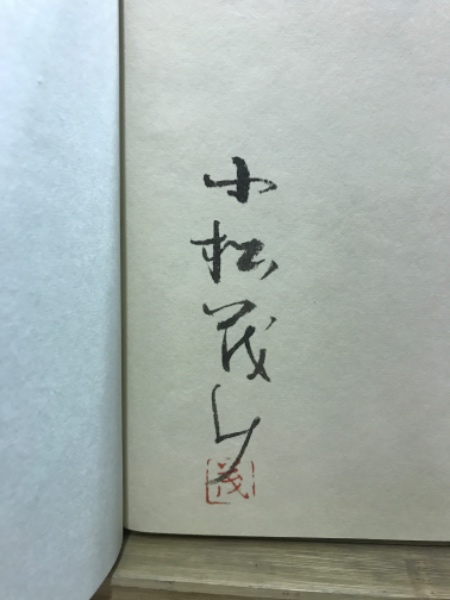 小松茂美
茂